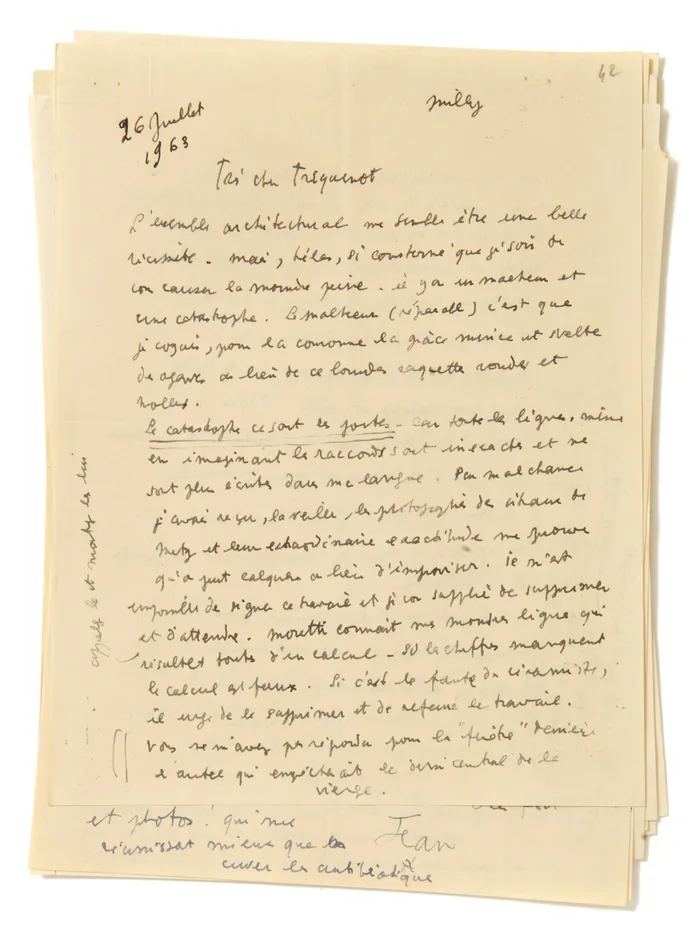 42
Milly
26 Juillet
1963
Très cher Triquenot
L'ensemble architectural me semble être une belle
réussite - mais, hélas, si consterné que je sois de
vous causer la moindre peine - il y a un malheur et
une catastrophe. Le malheur (réparable) c'est que
je voyais, pour la couronne la grâce mince et svelte
des agaves au lieu de ces lourdes raquettes rondes et
molles.
La catastrophe ce sont les portes - car toutes les lignes, même
en imaginant les raccords sont inexactes et ne
sont plus écrites dans ma langue. Par malchance
j'avais reçu, la veille, les photographies des vitraux de
Metz et leur extraordinaire exactitude me prouve
qu'on peut calquer au lieu d'improviser. Il m'est
impossible de signer ce travail et je vous supplie de supprimer
et d'attendre. Moretti connaît mes moindres lignes qui
résultent toutes d'un calcul - Si les chiffres manquent
le calcul est faux. Si c'est la faute du céramiste,
il urge de le supprimer et de refaire le travail.
Vous ne m'avez pas répondu pour la "fenêtre" derrière
l'autel qui empêcherait le dessin central de la
vierge.
appelez le et montrez les lui
et photos! qui me
réussissent mieux que les
cures les antibiotiques
Jean